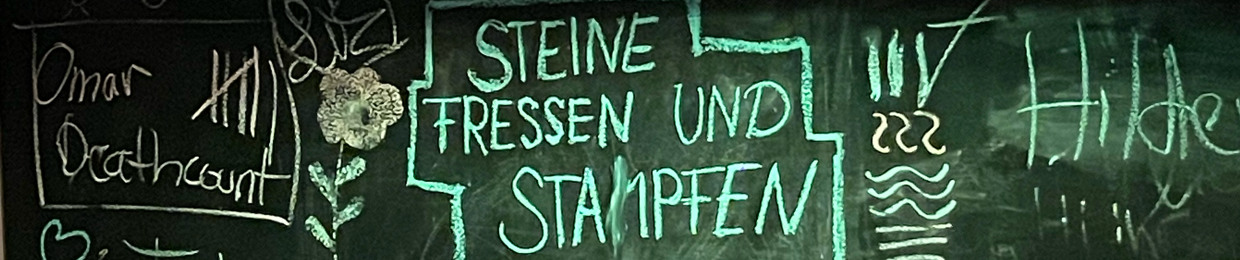 Omar
Deathcount
STEINE
FRESSEN UND
STAMPFEN
Hilde
Hi